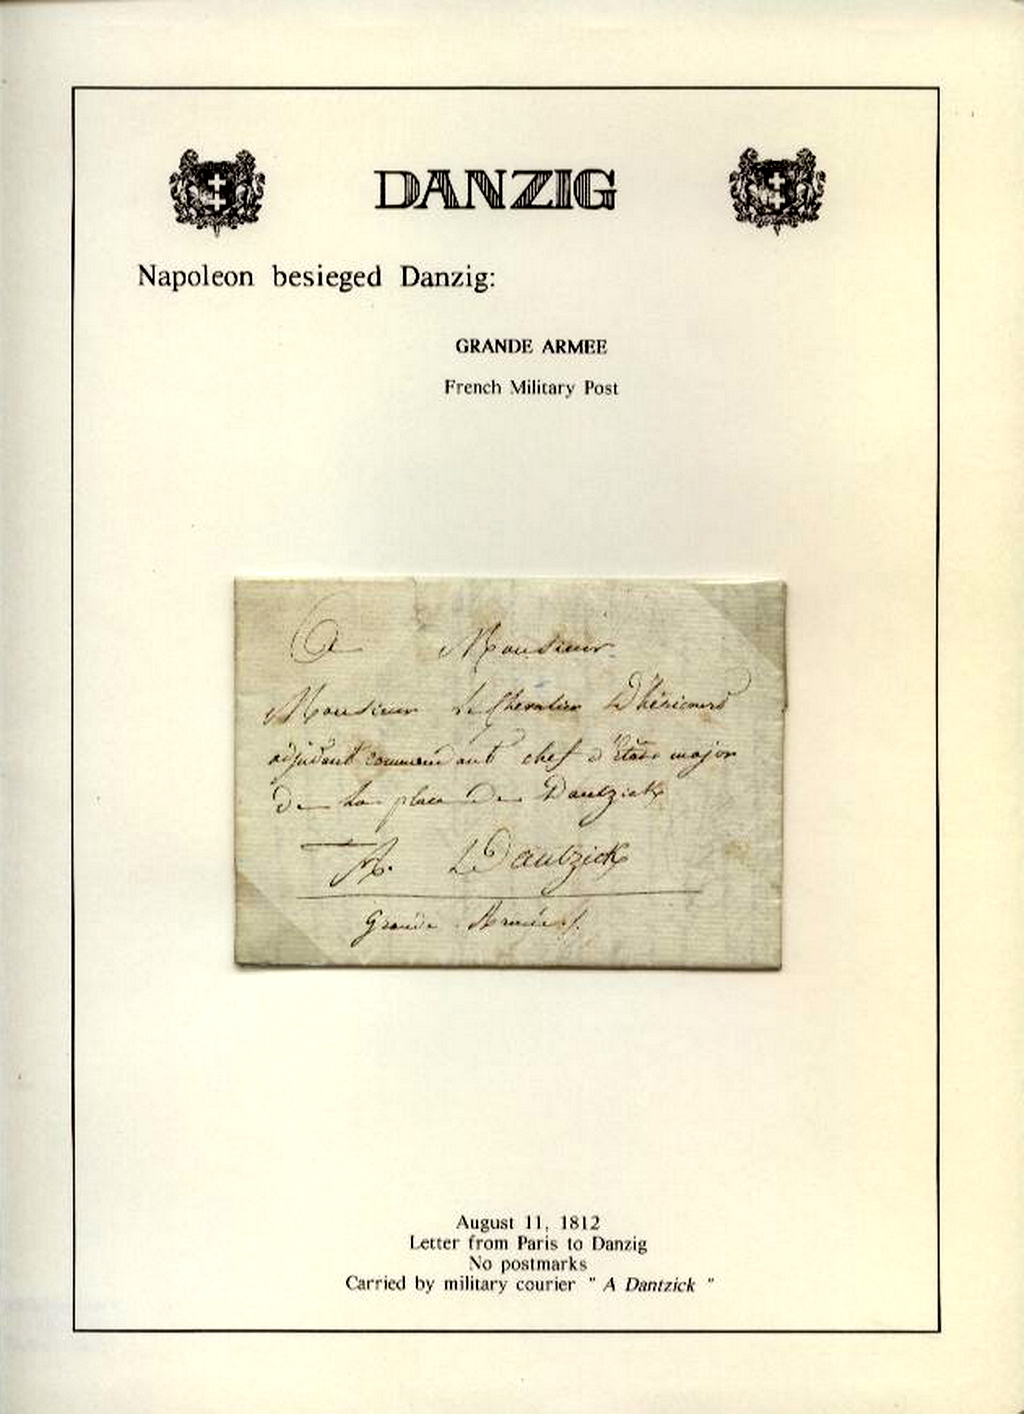 DANZIG
Napoleon besieged Danzig:
GRANDE ARMEE
French Military Post
A Monsieur
Monsieur le Chevalier D'héricourt
adjudant commandant chef d'Etat major
De La place De Dantzick
A. Dantzick
Grande Armée
August 11, 1812
Letter from Paris to Danzig
No postmarks
Carried by military courier " A Dantzick "